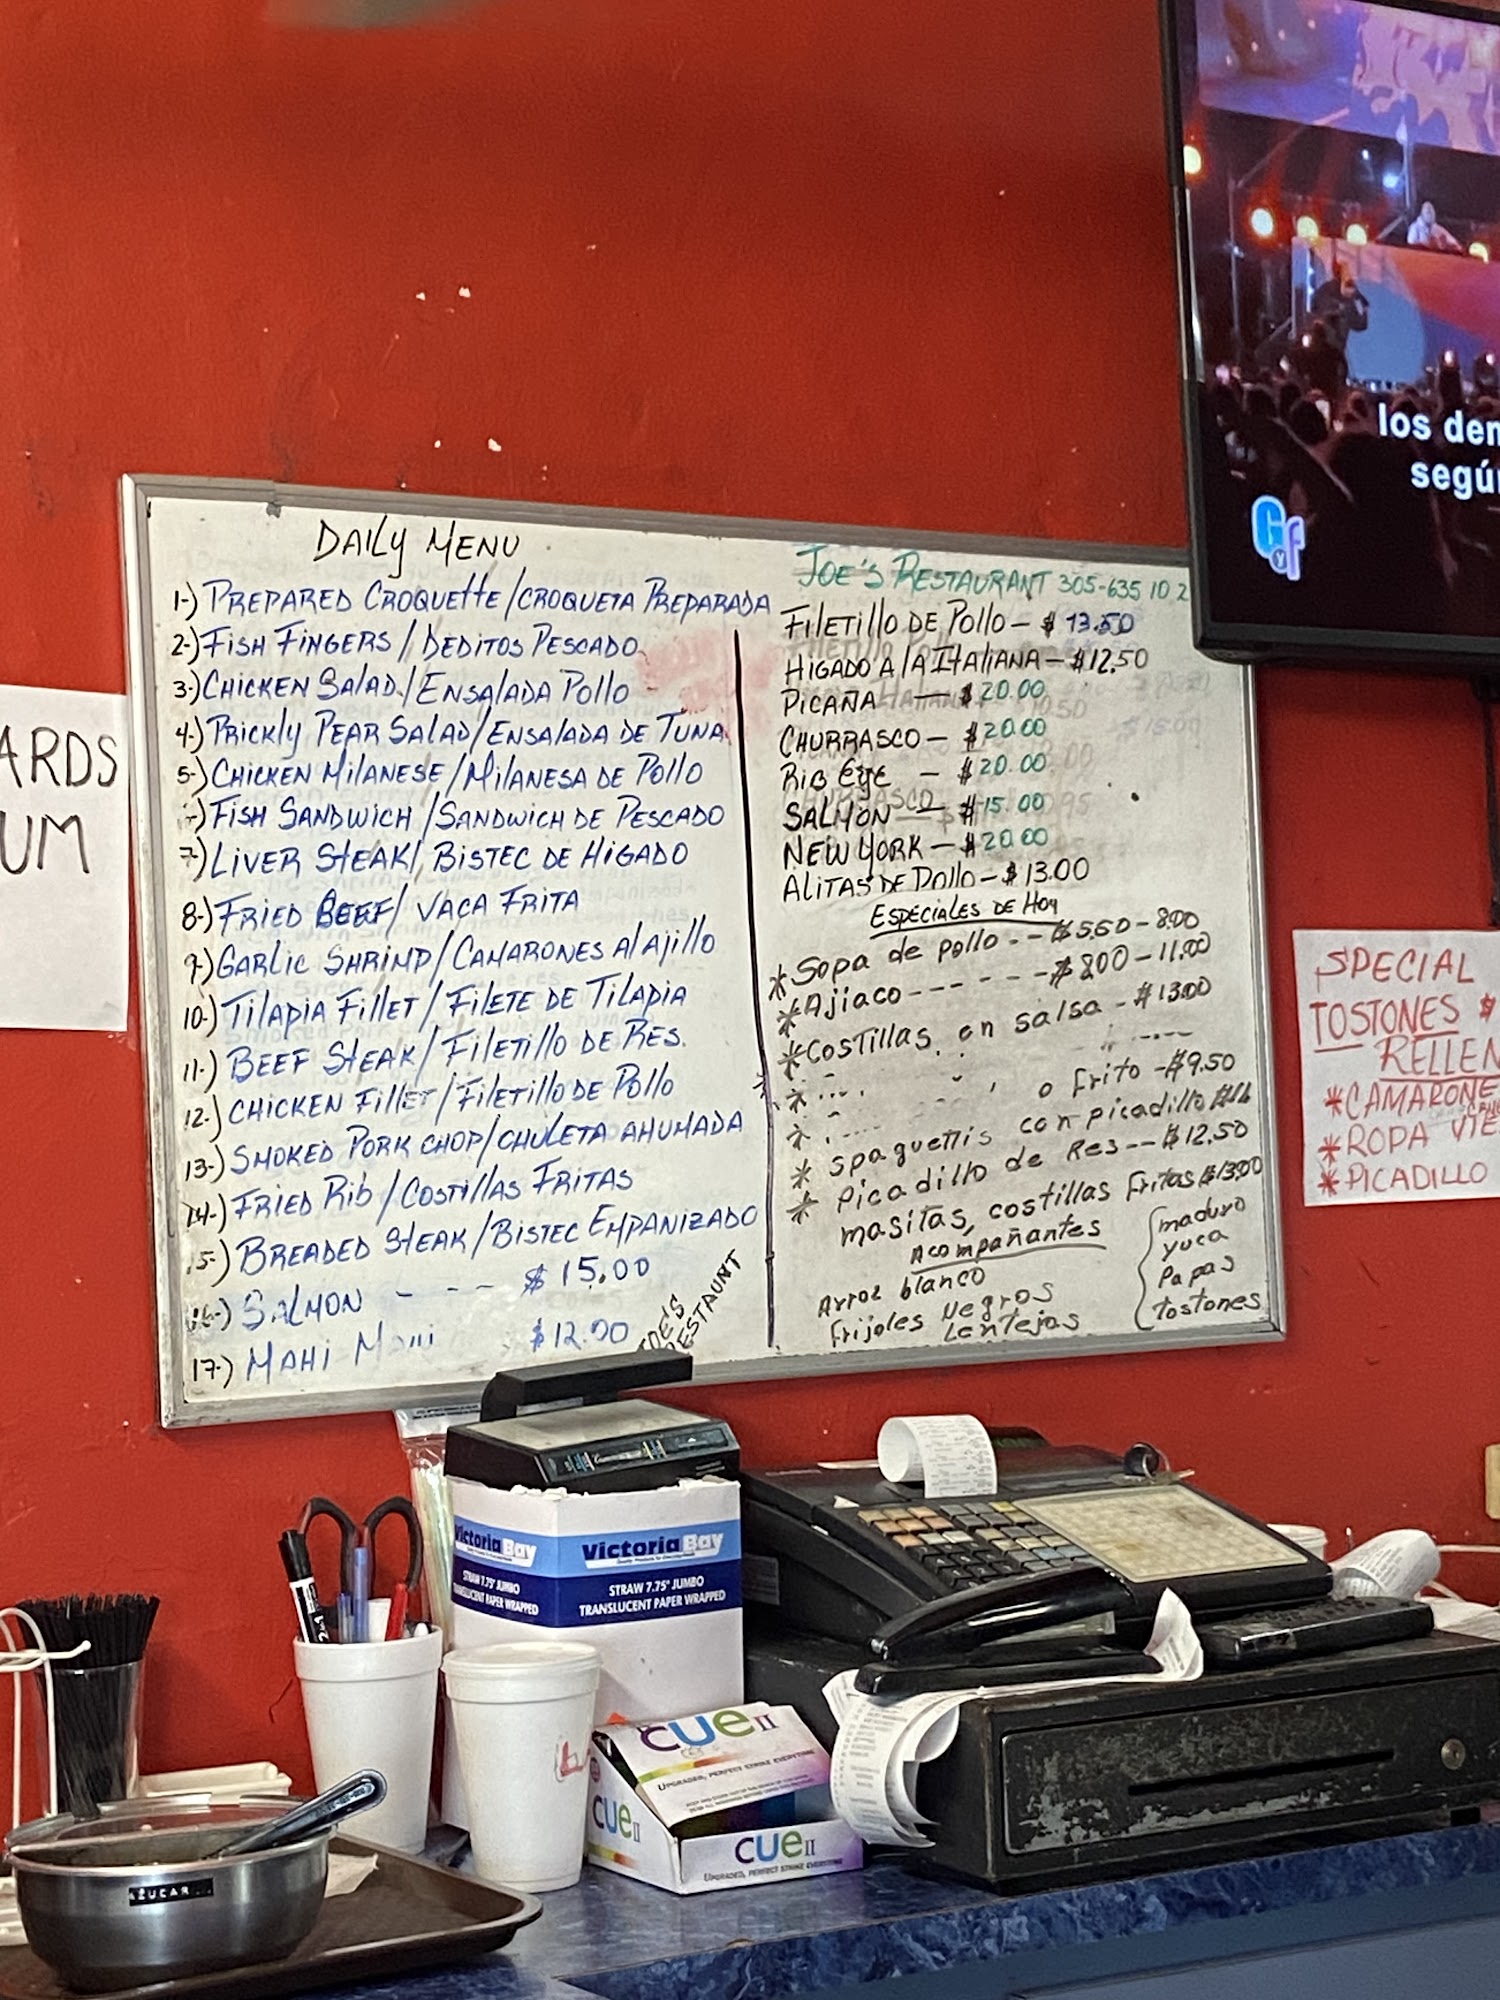 DAILY MENU
1-) PREPARED CROQUETTE/CROQUETA PREPARADA
2-) FISH FINGERS/DEDITOS PESCADO
3-) CHICKEN SALAD/ENSALADA POLLO
4-) PRICKLY PEAR SALAD/ENSALADA DE TUNA
5-) CHICKEN MILANESE/MILANESA DE POLLO
-) FISH SANDWICH/SANDWICH DE PESCADO
7-) LIVER STEAK/BISTEC DE HIGADO
8-) FRIED BEEF/VACA FRITA
9-) GARLIC SHRIMP/CAMARONES AL AJILLO
10-) TILAPIA FILLET/FILETE DE TILAPIA
11-) BEEF STEAK/FILETILLO DE RES.
12-) CHICKEN FILLET/FILETILLO DE POLLO
13-) SMOKED PORK CHOP/CHULETA AHUMADA
14-) FRIED RIB/COSTILLAS FRITAS
15-) BREADED STEAK/BISTEC EMPANIZADO
16-) SALMON - - - $ 15.00
17-) MAHI MAHI $12.00
JOE'S
RESTAUNT
JOE'S RESTAURANT 305-635 10 2
FILETILLO DE POLLO - $ 13.50
HIGADO A LA ITALIANA - $12.50
PICAÑA - $20.00
CHURRASCO - $20.00
RIB EYE - $20.00
SALMON - $15.00
NEW YORK - $20.00
ALITAS DE POLLO - $13.00
ESPECIALES DE HOY
* Sopa de pollo -- $5.50 - 8.00
* Ajiaco ------ $8.00 - 11.00
* Costillas en salsa - $13.00
*
* o frito - $9.50
* spaguettis con picadillo
* Picadillo de Res -- $12.50
masitas, costillas fritas $13.00
Acompañantes
Arroz blanco
Frijoles negros
Lentejas
maduro
yuca
Papas
tostones
ARDS
UM
los den
según
Gyf
SPECIAL
TOSTONES $
RELLEN
* CAMARONE
* ROPA VIE
* PICADILLO
VictoriaBay
STRAW 7.75" JUMBO
TRANSLUCENT PAPER WRAPPED
VictoriaBay
STRAW 7.75" JUMBO
TRANSLUCENT PAPER WRAPPED
CUE II
UPGRADED, PERFECT STRIKE EVERYTIME
CUE II
CUE II
UPGRADED, PERFECT STRIKE EVERYTIME
AZUCAR